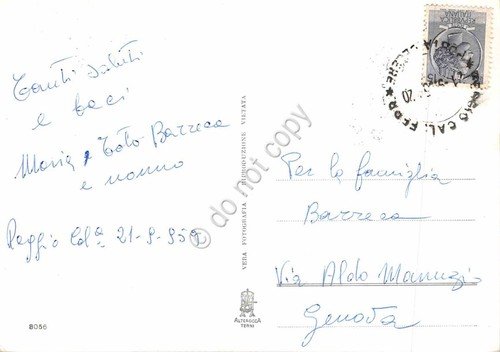 Tanti saluti
e baci
Maria, Totò Barreca
e nonno
Reggio Cal.ª 21-9-959
8056
VERA FOTOGRAFIA RIPRODUZIONE VIETATA
ALTEROCCA
TERNI
© do not copy
Per la famiglia
Barreca
Via Aldo Manuzio
Genova